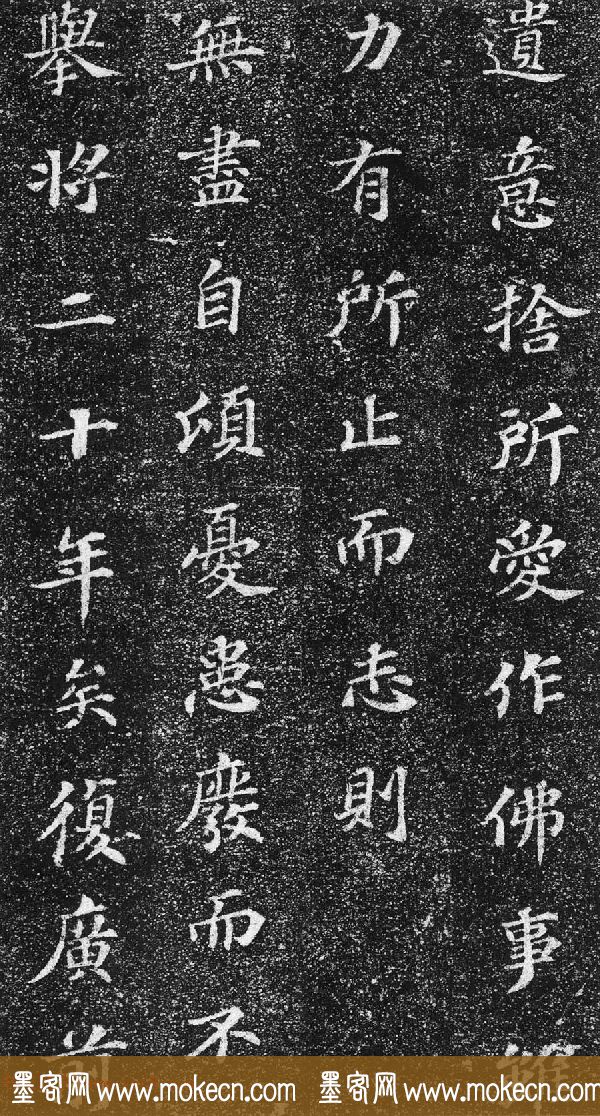 遺意捨所愛作佛事雖
力有所止而志則
無盡自頃憂患廢而不
舉將二十年矣復廣前
墨客网www.mokecn.com 墨客网www.mokecn.com